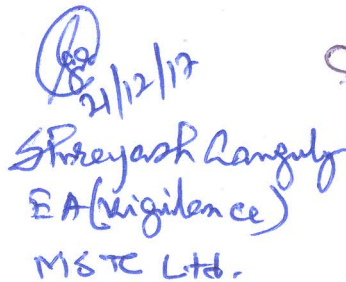 21/12/17
Shreyash Ganguly
EA (vigilance)
MSTC Ltd.